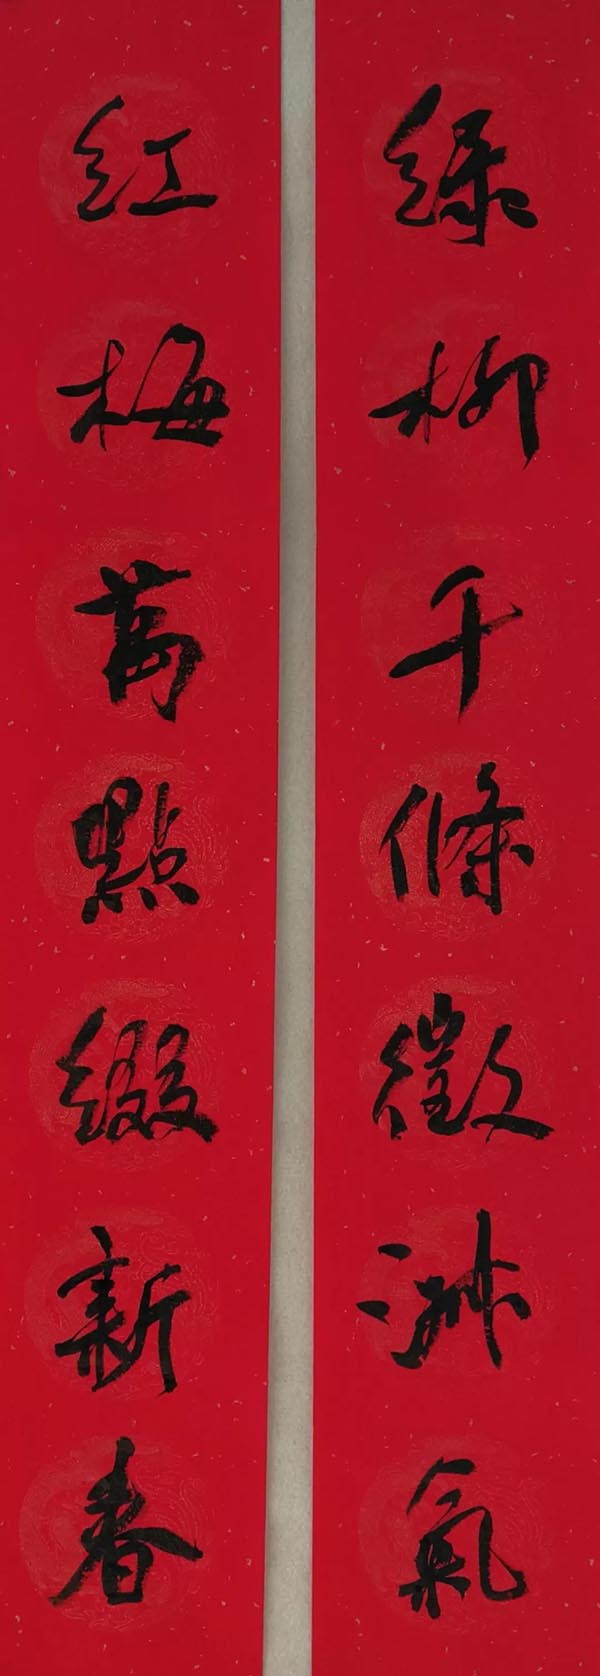 綠柳千條徵淑氣
紅梅萬點綴新春